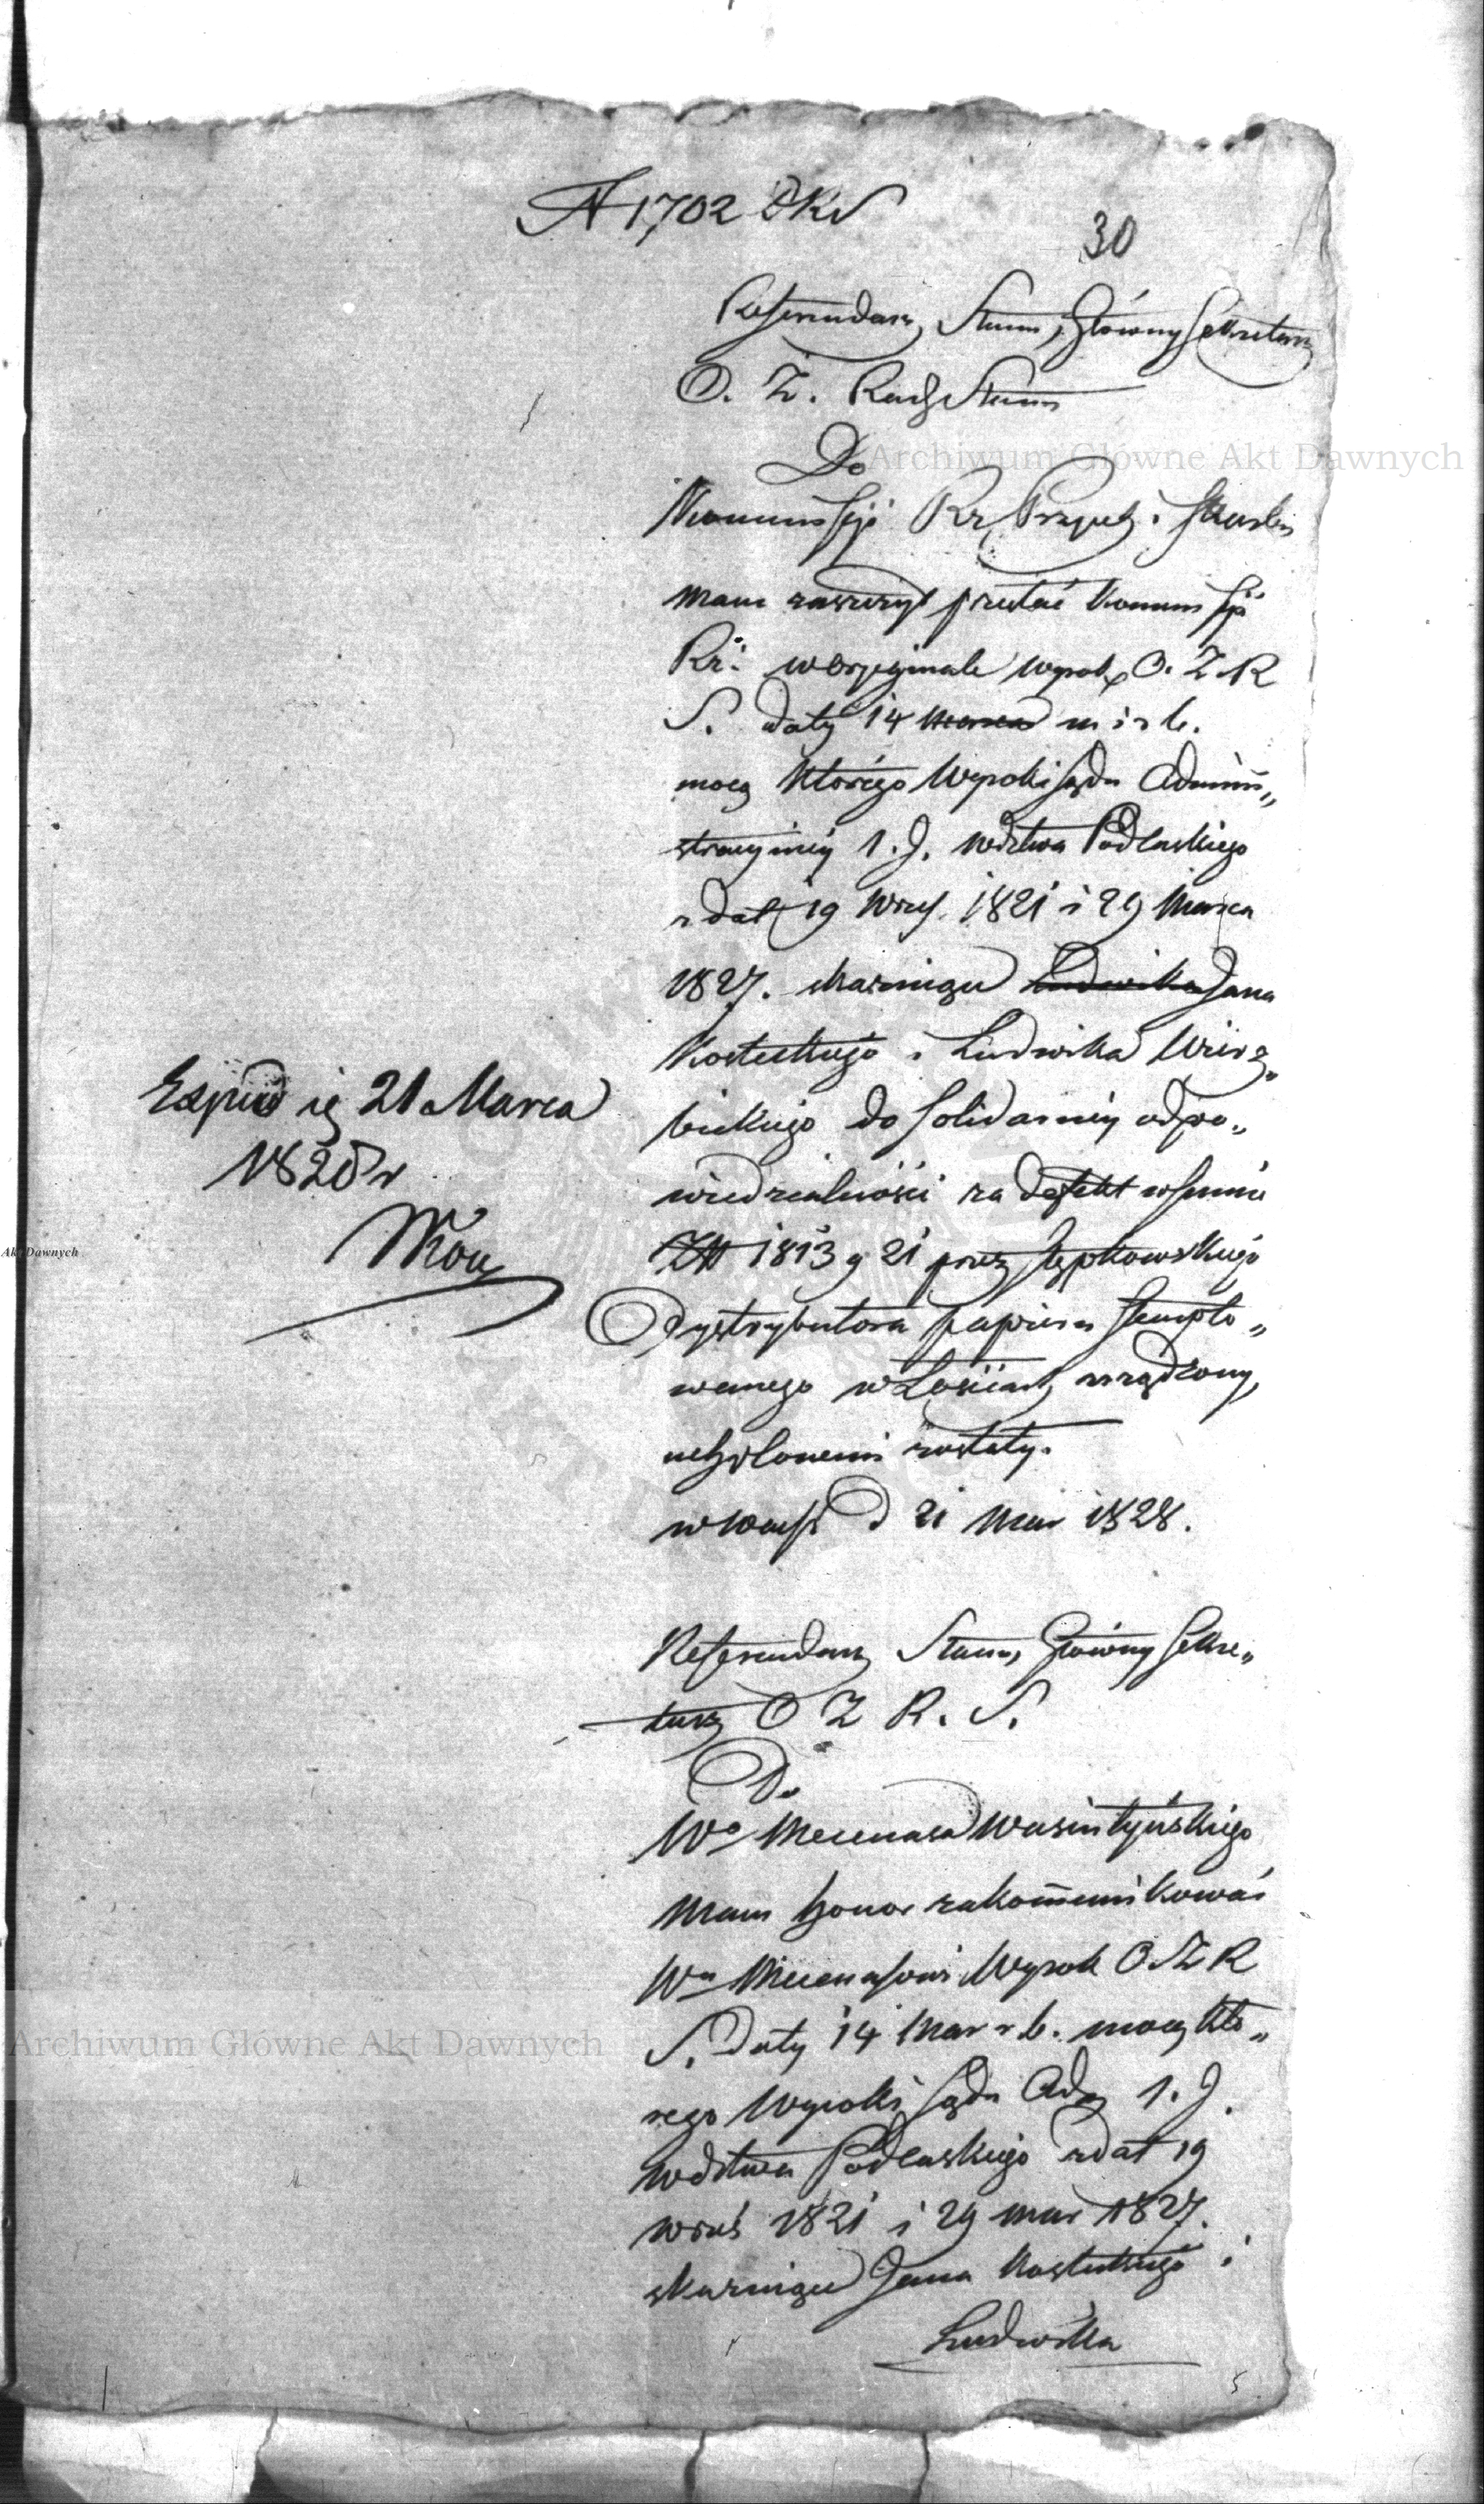 N 1702
30
Referendarz Stanu, Główny Sekretarz
O. Z. Rady Stanu
Do
Kommissyi Rz Przych i Skarbu
Mam zaszczyt przesłać Kommissyi
Rz: w oryginale wyrok O. Z. R
S. daty 14 Marca m i r b.
mocą którego Wyroki sądu Admini„
stracyjnéy 1. J. wdztwa Podlaskiego
z dat 19 Wrześ. 1821 i 29 Marca
1827. skazujące Ludwika Jana
Kosteckiego i Ludwika Wierz„
bickiego do solidarnéy odpo„
wiedzialności za defekt w summie
Zł 1813 g 21 przez Sępkowskiego
Dystrybutora papieru stemplo„
wanego w Łosicach zrządzony,
uchylonemi zostały.
w Warsz d 21 Mar 1828.
Expied się 21 Marca
1828 r
Referendarz Stanu, Główny Sekre„
tarz O Z R. S.
Do
Wo Mecenasa Wasiutyńskiego
Mam honor zakommunikować
Wu Mecenasowi Wyrok O. Z R
S. daty 14 Mar r b. mocą któ„
rego Wyroki sądu Adm 1. J.
wdztwa Podlaskiego z dat 19
wrześ 1821 i 29 mar 1827.
skazujące Jana Kosteckiego i
Ludwika
Archiwum Główne Akt Dawnych
Akt Dawnych
Archiwum Główne Akt Dawnych